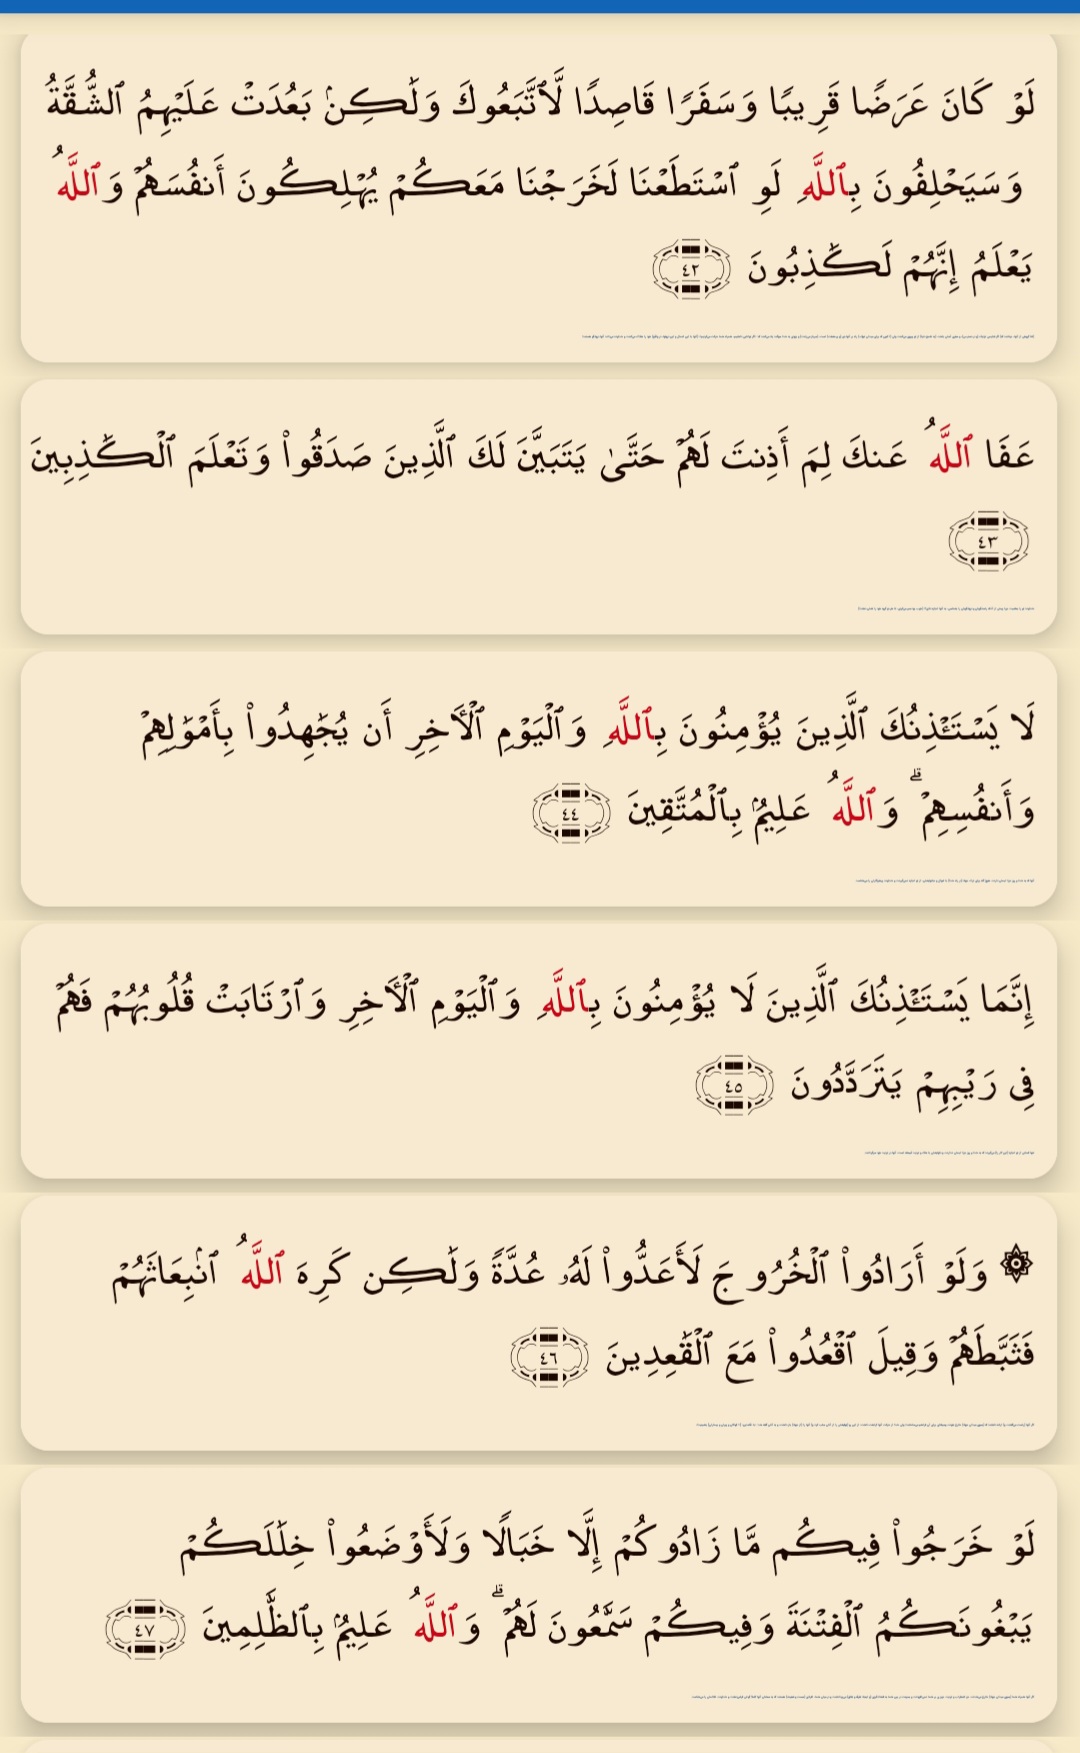 لَوْ كَانَ عَرَضًا قَرِيبًا وَسَفَرًا قَاصِدًا لَّٱتَّبَعُوكَ وَلَٰكِنۢ بَعُدَتْ عَلَيْهِمُ ٱلشُّقَّةُ
وَسَيَحْلِفُونَ بِٱللَّهِ لَوِ ٱسْتَطَعْنَا لَخَرَجْنَا مَعَكُمْ يُهْلِكُونَ أَنفُسَهُمْ وَٱللَّهُ
يَعْلَمُ إِنَّهُمْ لَكَٰذِبُونَ ٤٢
عَفَا ٱللَّهُ عَنكَ لِمَ أَذِنتَ لَهُمْ حَتَّىٰ يَتَبَيَّنَ لَكَ ٱلَّذِينَ صَدَقُوا۟ وَتَعْلَمَ ٱلْكَٰذِبِينَ
٤٣
لَا يَسْتَـْٔذِنُكَ ٱلَّذِينَ يُؤْمِنُونَ بِٱللَّهِ وَٱلْيَوْمِ ٱلْـَٔاخِرِ أَن يُجَٰهِدُوا۟ بِأَمْوَٰلِهِمْ
وَأَنفُسِهِمْ ۗ وَٱللَّهُ عَلِيمٌۢ بِٱلْمُتَّقِينَ ٤٤
إِنَّمَا يَسْتَـْٔذِنُكَ ٱلَّذِينَ لَا يُؤْمِنُونَ بِٱللَّهِ وَٱلْيَوْمِ ٱلْـَٔاخِرِ وَٱرْتَابَتْ قُلُوبُهُمْ فَهُمْ
فِى رَيْبِهِمْ يَتَرَدَّدُونَ ٤٥
۞ وَلَوْ أَرَادُوا۟ ٱلْخُرُوجَ لَأَعَدُّوا۟ لَهُۥ عُدَّةً وَلَٰكِن كَرِهَ ٱللَّهُ ٱنۢبِعَاثَهُمْ
فَثَبَّطَهُمْ وَقِيلَ ٱقْعُدُوا۟ مَعَ ٱلْقَٰعِدِينَ ٤٦
لَوْ خَرَجُوا۟ فِيكُم مَّا زَادُوكُمْ إِلَّا خَبَالًا وَلَأَوْضَعُوا۟ خِلَٰلَكُمْ
يَبْغُونَكُمُ ٱلْفِتْنَةَ وَفِيكُمْ سَمَّٰعُونَ لَهُمْ ۗ وَٱللَّهُ عَلِيمٌۢ بِٱلظَّٰلِمِينَ ٤٧